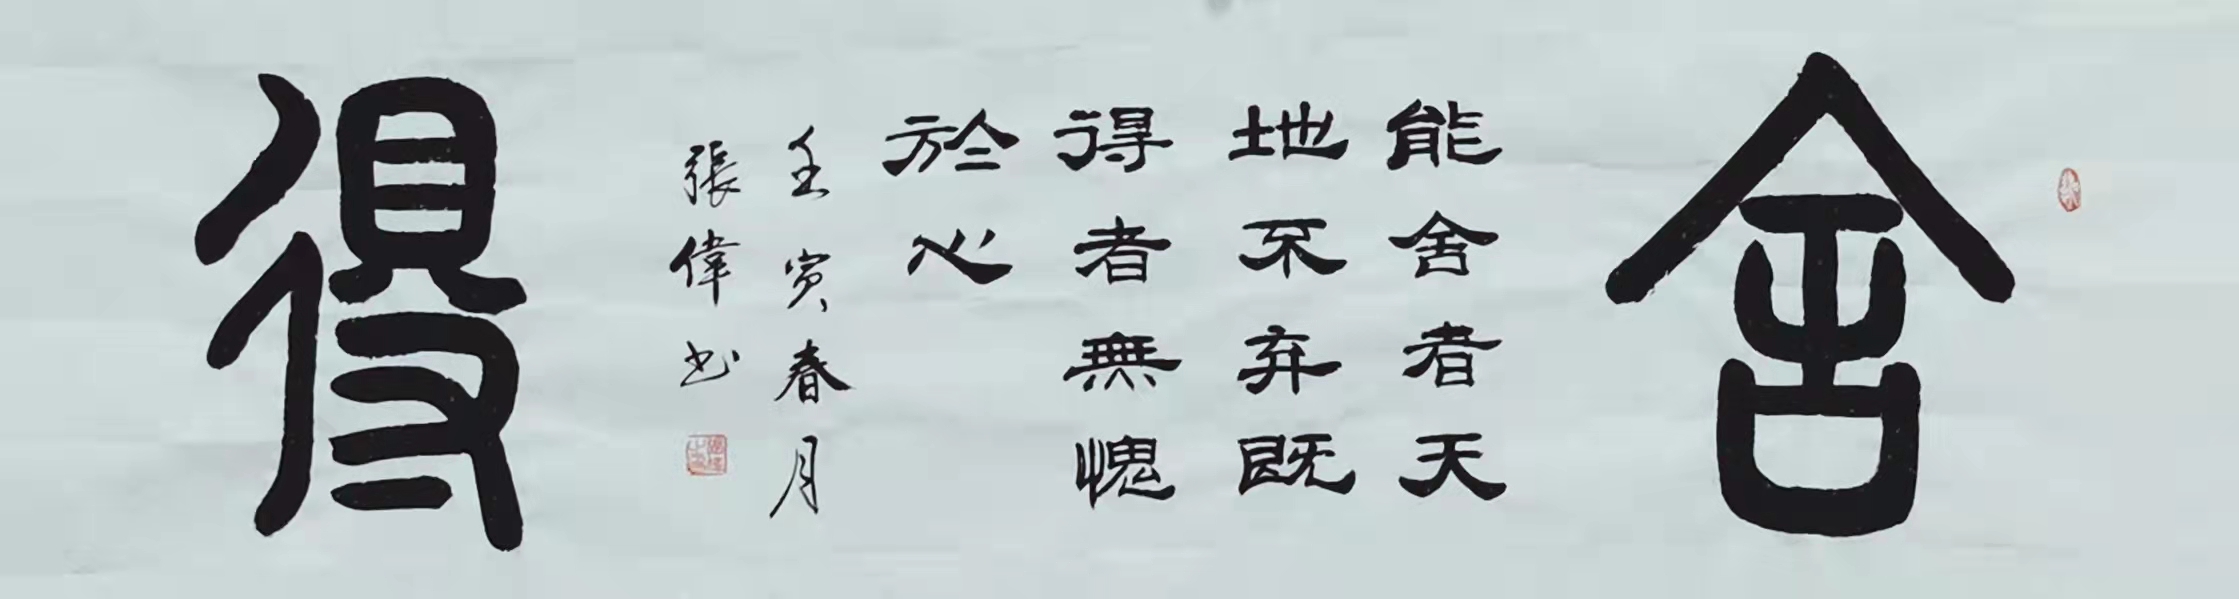 舍
能舍者天
地不弃既
得者無愧
於心
壬寅春月
張偉书
得